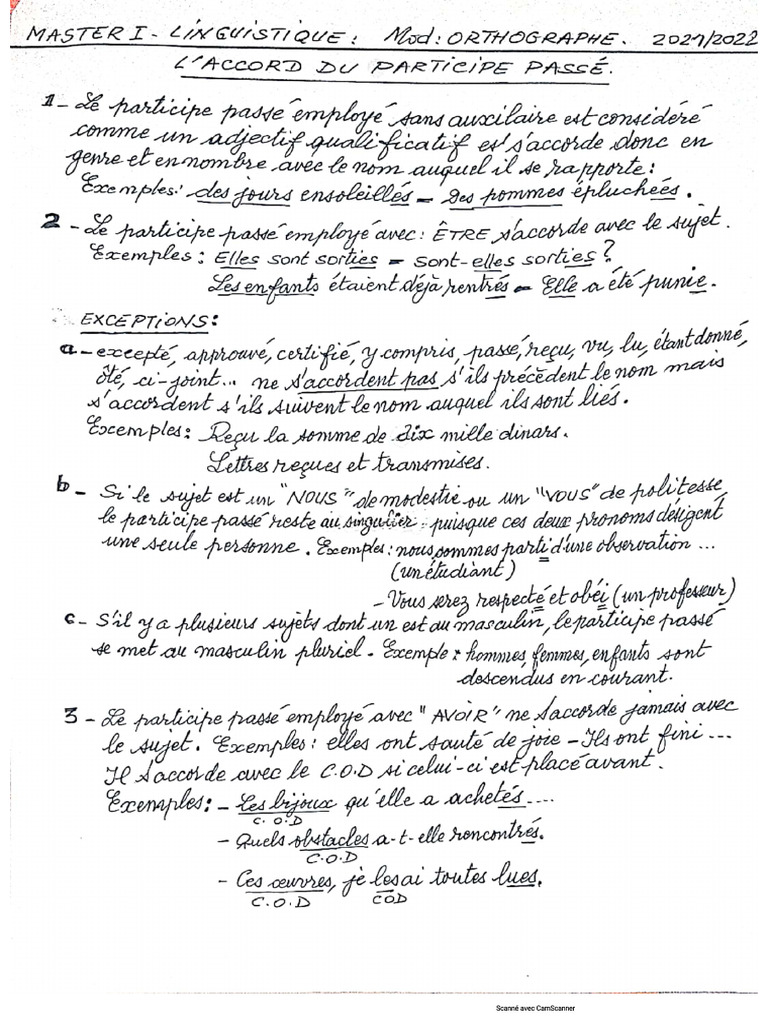 MASTER I - LINGUISTIQUE: Mod: ORTHOGRAPHE. 2021/2022
L'ACCORD DU PARTICIPE PASSÉ.
1 - Le participe passé employé sans auxilaire est considéré
comme un adjectif qualificatif et s'accorde donc en
genre et en nombre avec le nom auquel il se rapporte:
Exemples: des jours ensoleillés - Des pommes épluchées.
2 - Le participe passé employé avec: ÊTRE s'accorde avec le sujet.
Exemples: Elles sont sorties = sont-elles sorties?
Les enfants étaient déjà rentrés - Elle a été punie.
EXCEPTIONS:
a - excepté, approuvé, certifié, y compris, passé, reçu, vu, lu, étant donné,
ôté, ci-joint... ne s'accordent pas s'ils précèdent le nom mais
s'accordent s'ils suivent le nom auquel ils sont liés.
Excemples: Reçu la somme de dix mille dinars.
Lettres reçues et transmises.
b - Si le sujet est un "NOUS" de modestie ou un "VOUS" de politesse,
le participe passé reste au singulier puisque ces deux pronoms désigent
une seule personne. Exemples: nous sommes parti d'une observation ...
(un étudiant)
- Vous serez respecté et obéi (un professeur)
c - S'il y a plusieurs sujets dont un est au masculin, le participe passé
se met au masculin pluriel. Exemple: hommes, femmes, enfants sont
descendus en courant.
3 - Le participe passé employé avec "AVOIR" ne s'accorde jamais avec
le sujet. Exemples: elles ont sauté de joie - Ils ont fini ...
Il s'accorde avec le C.O.D si celui-ci est placé avant.
Exemples: - Les bijoux qu'elle a achetés....
C.O.D
- Quels obstacles a-t-elle rencontrés.
C.O.D
- Ces œuvres, je les ai toutes lues.
C.O.D COD
Scanné avec CamScanner